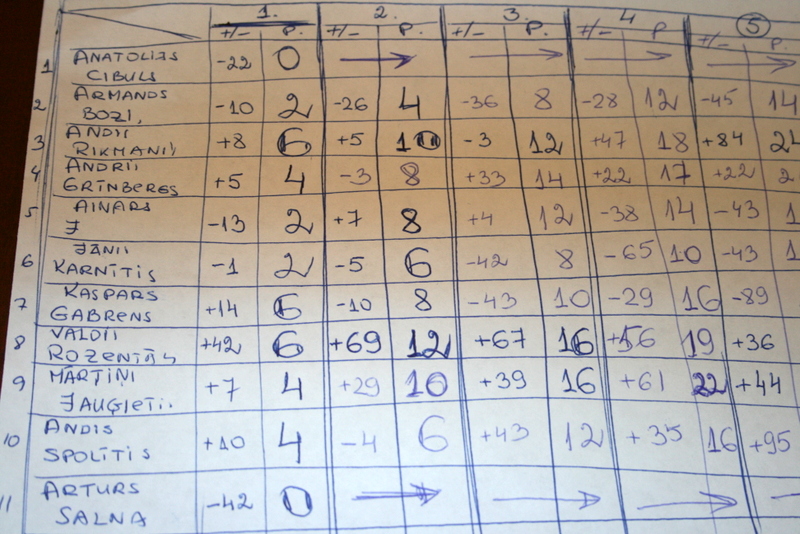 1. 2. 3. 4 5
+/- P. +/- P. +/- P. +/- P. +/- P.
1 ANATOLIJS -22 0
CIBULS
2 ARMANDS -10 2 -26 4 -36 8 -28 12 -45 14
BOZI,
3 ANDII +8 6 +5 10 -3 12 +47 18 +84 24
RIKMANIJ
4 ANDRII +5 4 -3 8 +33 14 +22 17 +22 2
GRINBERGS
5 AINARS -13 2 +7 8 +4 12 -38 14 -43 1
J
6 JĀNII -1 2 -5 6 -42 8 -65 10 -43 1
KARNĪTIS
7 KASPARS +14 6 -10 8 -43 10 -29 16 -89
GABRENS
8 VALDII +42 6 +69 12 +67 16 +56 19 +36
ROZENTĀL
9 MĀRTIŅI +7 4 +29 10 +39 16 +61 22 +44
10 ANDIS +10 4 -4 6 +43 12 +35 16 +95
SPOLĪTIS
11 ARTURS -42 0
SALNA